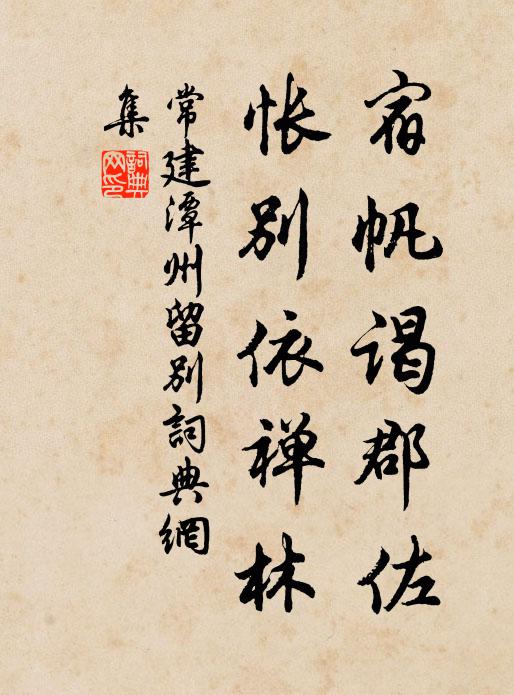 宿帆谒郡佐
怅别依禅林
常建潭州留别詞典網
集
詞典網印